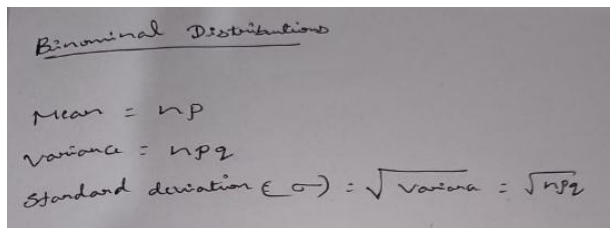 Binominal Distributions
Mean = np
Variance = npq
Standard deviation (σ) = √Variance = √npq